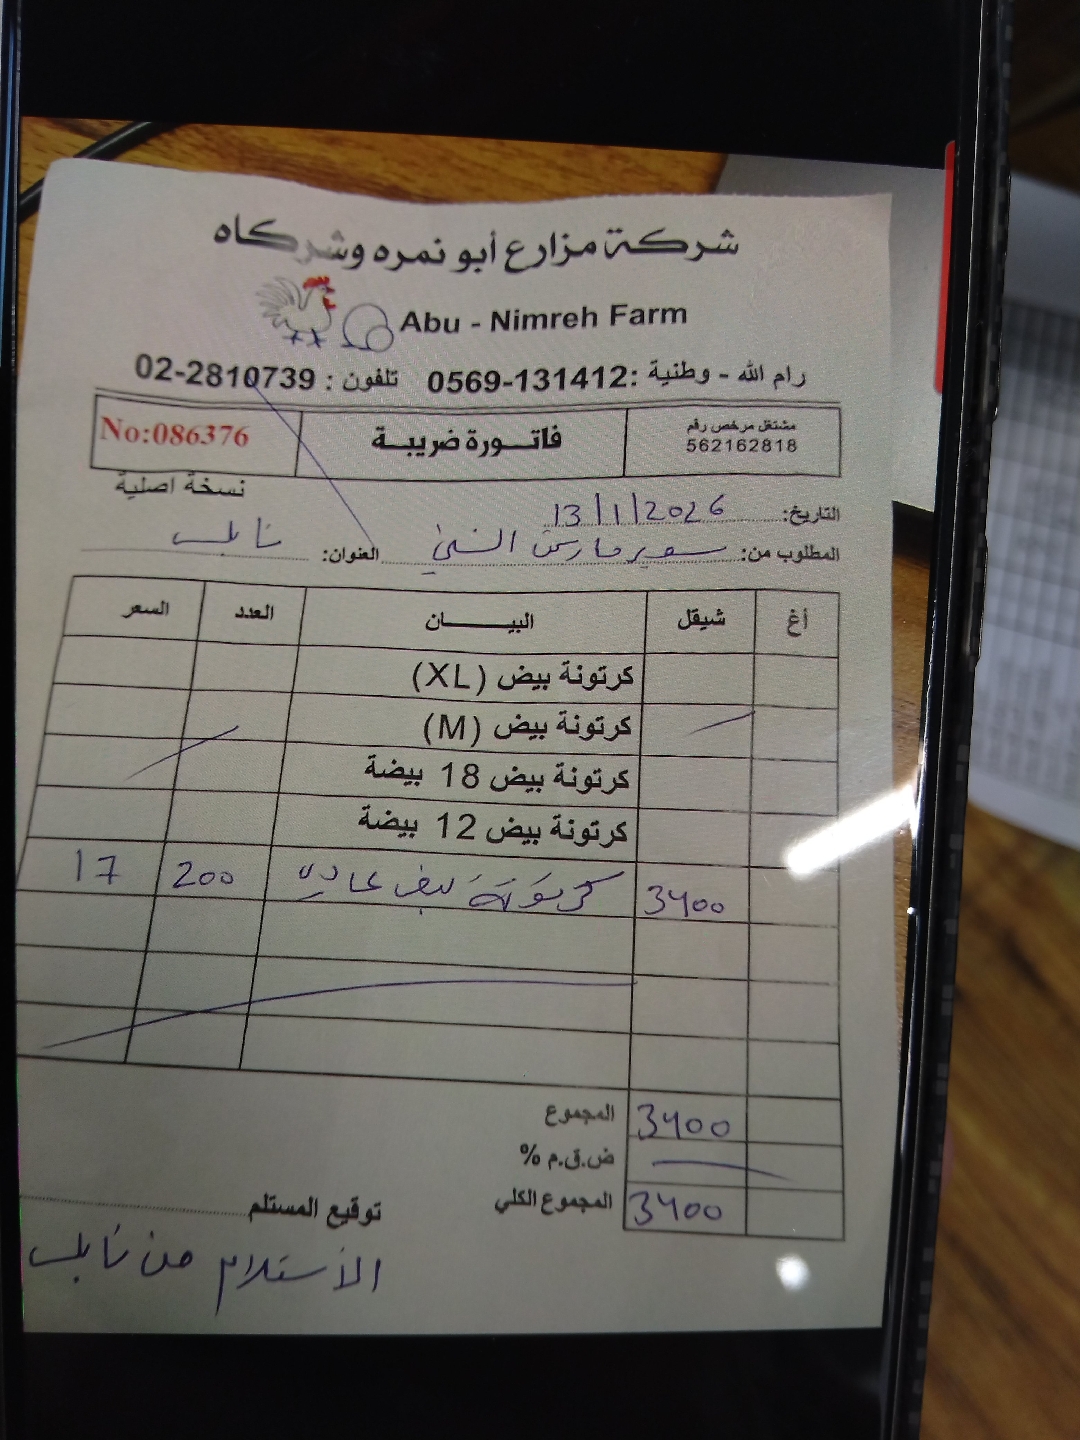 شركة مزارع أبو نمره وشركاه
Abu - Nimreh Farm
رام الله - وطنية :0569-131412 تلفون : 02-2810739
مشتغل مرخص رقم
562162818
فاتورة ضريبة
No:086376
نسخة اصلية
التاريخ: 13/1/2026
المطلوب من: سوبر ماركت العنوان: نابلس
أغ شيقل البيان العدد السعر
كرتونة بيض (XL)
كرتونة بيض (M)
كرتونة بيض 18 بيضة
كرتونة بيض 12 بيضة
3400 كرتونة بيض عادي 200 17
المجموع 3400
ض.ق.م %
المجموع الكلي 3400
توقيع المستلم
الأستلام من نابلس